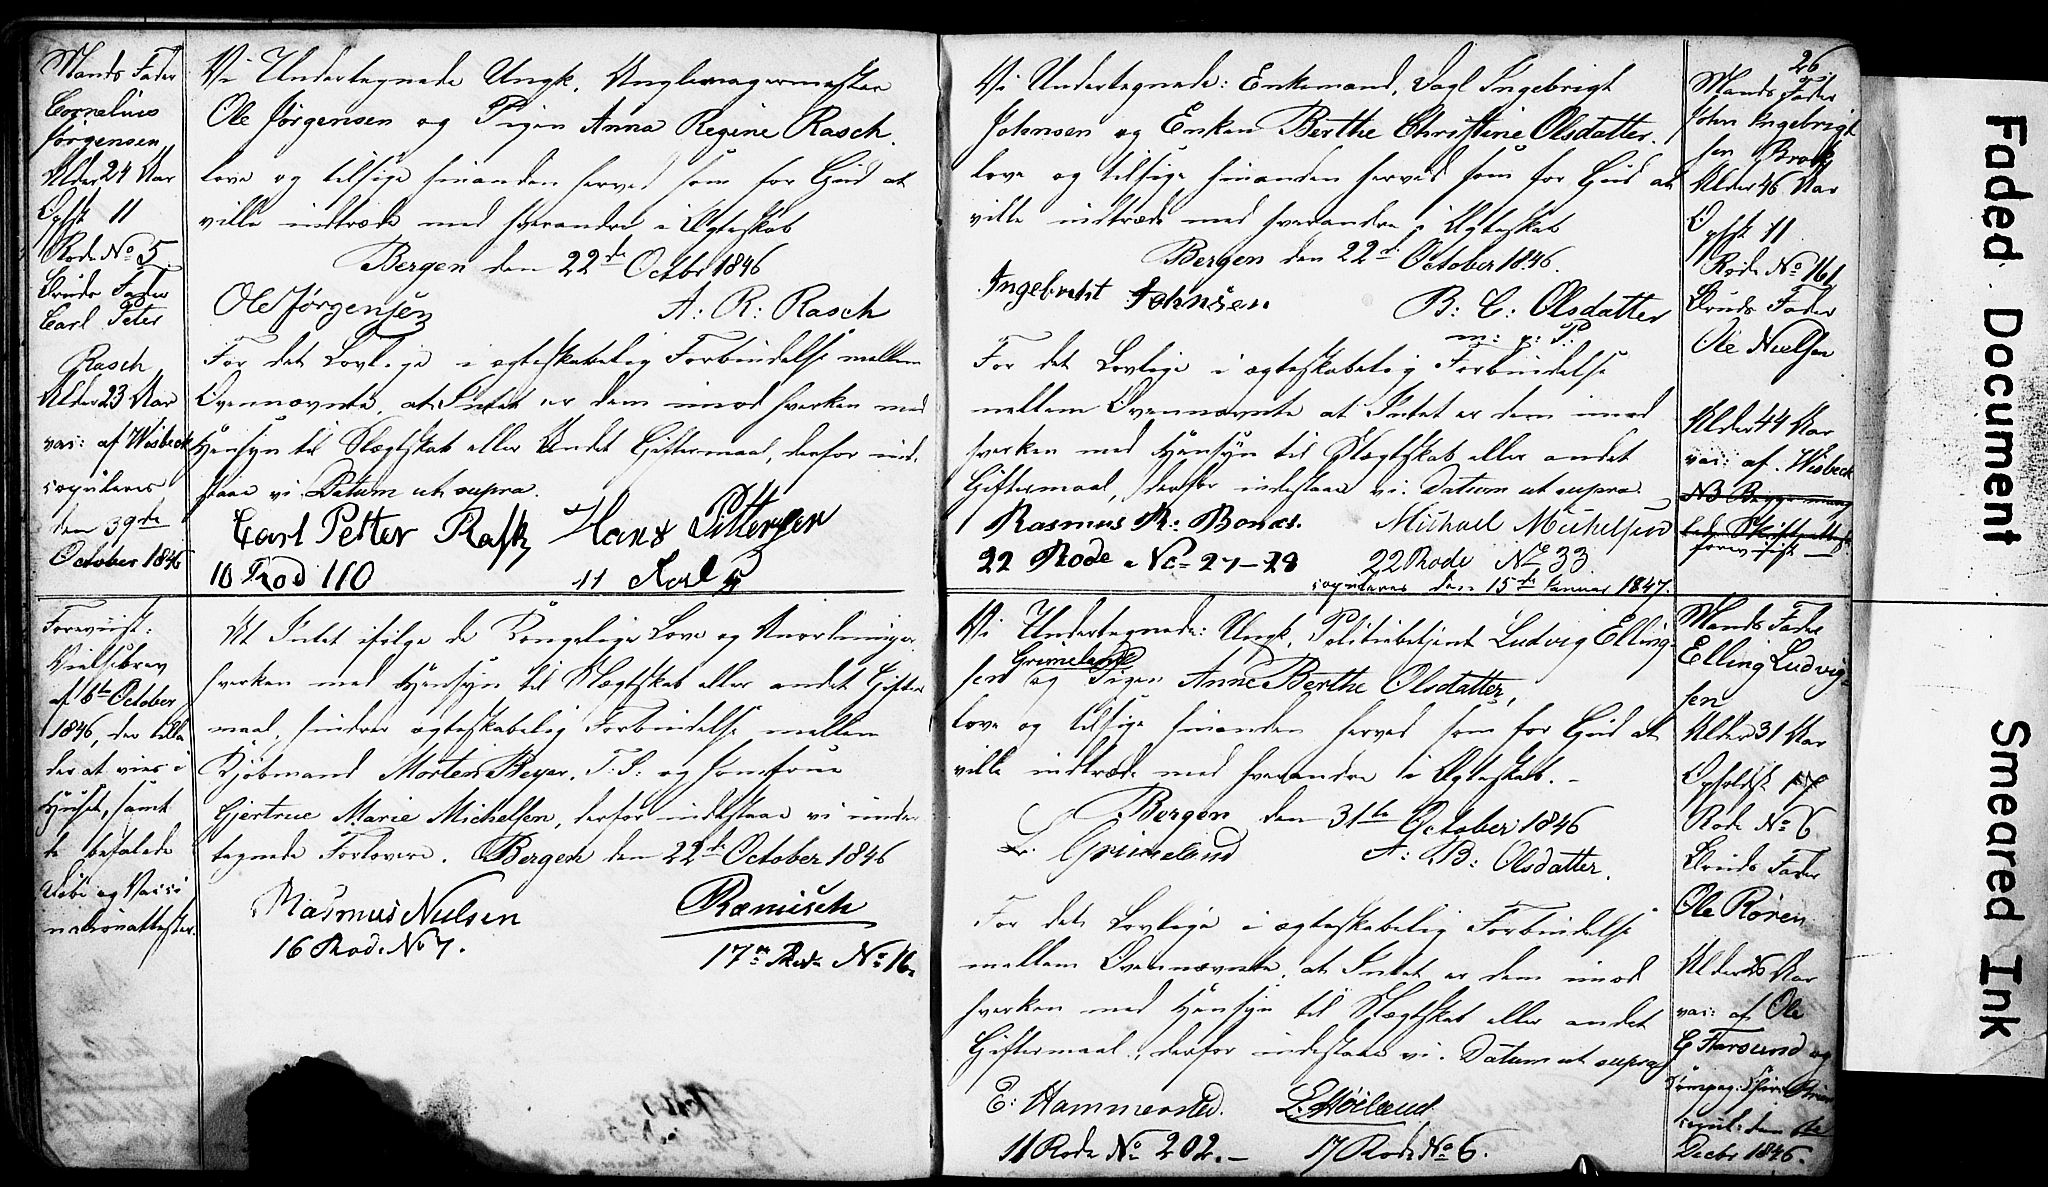 Mands Fader
Cornelius
Jørgensen
Alder 24 Aar
Opfst 11
Rode No 5
Bruds Fader
Carl Peter
Rasch
Alder 23 Aar
vac: af Wisbeck
copuleres
den 39te
October 1846
Vi Undertegnede Ungk. Vognmagermester
Ole Jørgensen og Pigen Anna Regine Rasch.
love og tilsige hinanden herved som for Gud at
ville indtræde med hverandre i Ægteskab
Bergen den 22de Octbr 1846
Ole Jørgensen A: R: Rasch
For det Lovlige i ægteskabelig Forbindelse mellem
Ovennævnte, at Intet er dem imod hverken med
Hensyn til Slægtskab eller andet Giftermaal, derfor ind-
staae vi Datum ut supra.
Carl Petter Rask Hans Pettersen
10 Rod 110 11
Foreviist:
Vielsebrev
af 6te October
1846, der tilla
der at vies i
Huset, samt
de befalede
Døbe og Vacci
nationattester.
At Intet ifølge de Kongelige Love og Anordninger
hverken med Hensyn til Slægtskab eller andet Gifter
maal, hindrer ægteskabelig Forbindelse mellem
Kjøbmand Morten Beyer, T. S: og Jomfrue
Gjertrue Marie Michelsen, derfor indestaae vi under
tegnede Forlovere. Bergen den 22de October 1846
Rasmus Nielsen Ramusch
16 Rode No 7. 17de Rode No 16
26
Vi Undertegnede: Enkemand, Dagl Ingebrigt
Johnsen og Enken Berthe Christine Olsdatter.
love og tilsige hinanden herved som for Gud at
ville indtræde med hverandre i Ægteskab
Bergen den 22de October 1846.
Ingebreht Johnsen B: C: Olsdatter
m: p: P:
For det Lovlige i ægteskabelig Forbindelse
mellem Ovennævnte at Intet er dem imod
hverken med Hensyn til Slægtskab eller andet
Giftermaal, derfor indestaae vi. Datum ut supra.
Rasmus R: Bonæs. Michael Michelsen
22 Rode No 27-28 22 Rode No 33
copuleres den 15de Januar 1847.
Mands Fader
John Ingebrigt
sen
Alder 46 Aar
Opfst 11
Rode No 161
Bruds Fader
Ole Nielsen
Alder 44 Aar
vac: af Wisbeck
foreviist
Vi Undertegnede: Ungk. Politiebetjent Ludvig Elling-
Grimeland
sen og Pigen Anne Berthe Olsdatter,
love og tilsige hinanden herved som for Gud at
ville indtræde med hverandre i Ægteskab.
Bergen den 31te October 1846
L. Grimeland A: B: Olsdatter.
For det Lovlige i ægteskabelig Forbindelse
mellem Ovennævnte, at Intet er dem imod
hverken med Hensyn til Slægtskab eller andet
Giftermaal, derfor indestaae vi. Datum ut supra
E: Hammersted. L. Høiland
11 Rode No 202. 17 Rode No 6.
Mands Fader
Elling Ludvig-
sen
Alder 31 Aar
Opholdst 17
Rode No 6
Bruds Fader
Ole Røren
Alder 26 Aar
vac: af Ole
G Farsund og
copul: den
Decbr 1846.
Faded Document
Smeared Ink